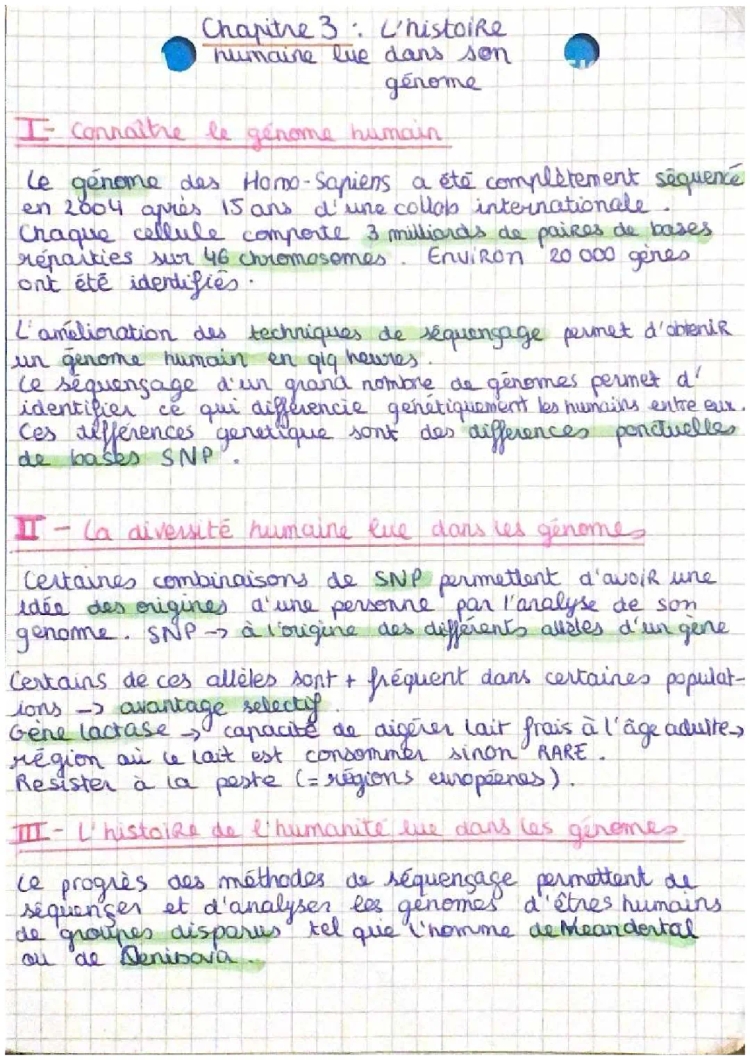 Chapitre 3 : L'histoire
humaine lue dans son
génome
I- Connaître le génome humain
Le génome des Homo-Sapiens a été complètement séquencé
en 2004 après 15 ans d'une collab internationale.
Chaque cellule comporte 3 milliards de paires de bases
réparties sur 46 chromosomes. Environ 20 000 gènes
ont été identifiés.
L'amélioration des techniques de séquençage permet d'obtenir
un génome humain en qlq heures.
Le séquençage d'un grand nombre de génomes permet d'
identifier ce qui différencie génétiquement les humains entre eux.
Ces différences genetique sont des différences ponctuelles
de bases SNP.
II - La diversité humaine lue dans les génomes
Certaines combinaisons de SNP permettent d'avoir une
idée des origines d'une personne par l'analyse de son
genome. SNP → à l'origine des différents allèles d'un gène
Certains de ces allèles sont + fréquent dans certaines populat-
ions → avantage selectif.
Gène lactase → capacité de digérer lait frais à l'âge adulte →
région où le lait est consommer sinon RARE.
Resister à la peste (= régions européenes).
III - L'histoire de l'humanité lue dans les génomes
Le progrès des méthodes de séquençage permettent de
séquençer et d'analyser les génomes d'êtres humains
de groupes disparus tel que l'homme de Neandertal
ou de Denisova.